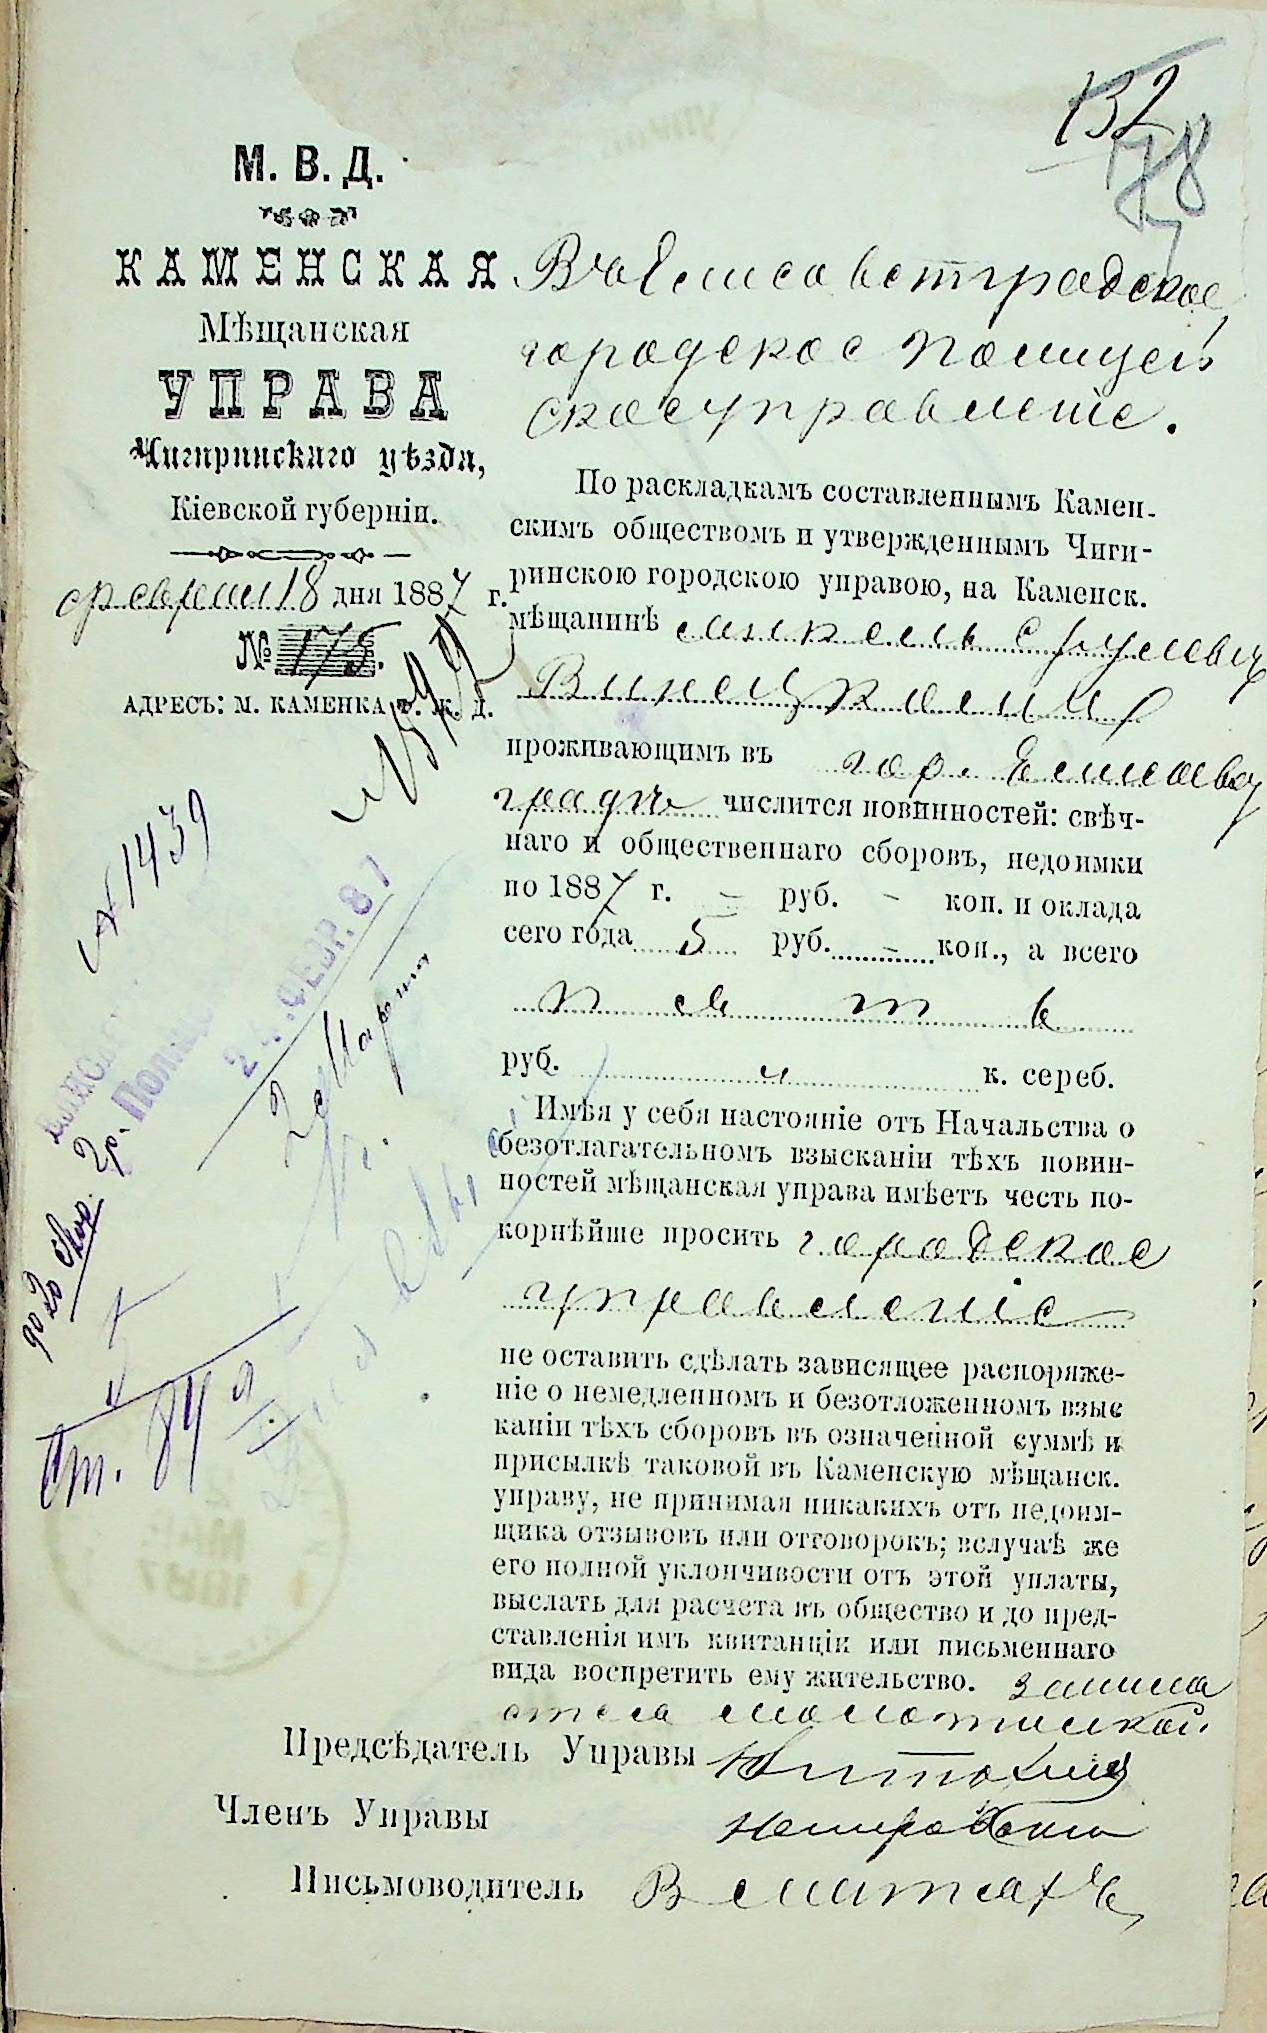 132
78
М. В. Д.
КАМЕНСКАЯ
Мѣщанская
УПРАВА
Чигиринскаго уѣзда,
Кіевской губерніи.
февраля 18 дня 1887 г.
№ 175.
АДРЕСЪ: М. КАМЕНКА Ф. Ж. Д.
Въ Елисаветградское
городское полицей
ское управленіе.
По раскладкамъ составленнымъ Камен-
скимъ обществомъ и утвержденнымъ Чиги-
ринскою городскою управою, на Каменск.
мѣщанинѣ Сруловичѣ
проживающимъ въ гор. Елисавет
градѣ числится повинностей: свѣч-
наго и общественнаго сборовъ, недоимки
по 1887 г. – руб. – коп. и оклада
сего года 5 руб. – коп., а всего
пять
руб. к. сереб.
Имѣя у себя настояніе отъ Начальства о
безотлагательномъ взысканіи тѣхъ повин-
ностей мѣщанская управа имѣетъ честь по-
корнѣйше просить городское
управленіе
не оставить сдѣлать зависящее распоряже-
ніе о немедленномъ и безотложенномъ взыс
каніи тѣхъ сборовъ въ означенной суммѣ и
присылкѣ таковой въ Каменскую мѣщанск.
управу, не принимая никакихъ отъ недоим-
щика отзывовъ или отговорокъ; вслучаѣ же
его полной уклончивости отъ этой уплаты,
выслать для расчета въ общество и до пред-
ставленія имъ квитанціи или письменнаго
вида воспретить ему жительство.
Предсѣдатель Управы
Членъ Управы
Письмоводитель
№ 1439
24 ФЕВР. 87
2 Марта
Ст.
1887